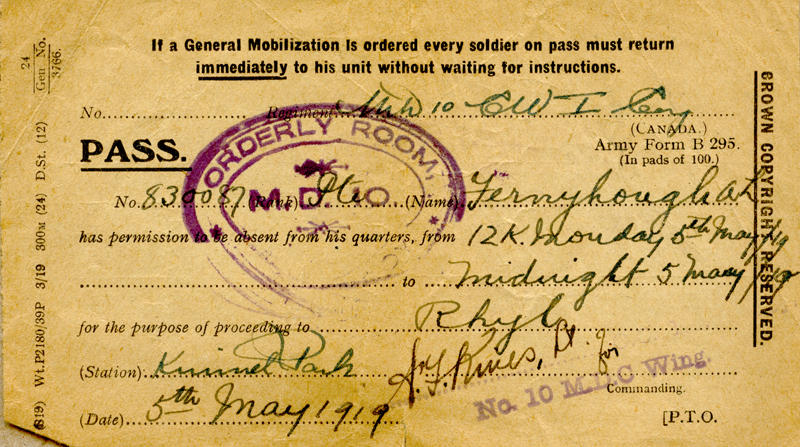 24
Gen. No.
3766.
If a General Mobilization is ordered every soldier on pass must return
immediately to his unit without waiting for instructions.
No. Regiment 10
(CANADA.)
PASS.
Army Form B 295.
(In pads of 100.)
ORDERLY ROOM,
M.D. 10
No. 830087 (Rank) Pte (Name) Fernyhough A L
has permission to be absent from his quarters, from 12K. Monday 5th May/19
to midnight 5 May/19
for the purpose of proceeding to Rhyl
(Station) Kinmel Park Lt. for
Commanding.
No. 10 Wing.
(Date) 5th May 1919
[P.T.O.
(S19) Wt.P2180/39P 3/19 300M (24) D.St. (12)
CROWN COPYRIGHT RESERVED.